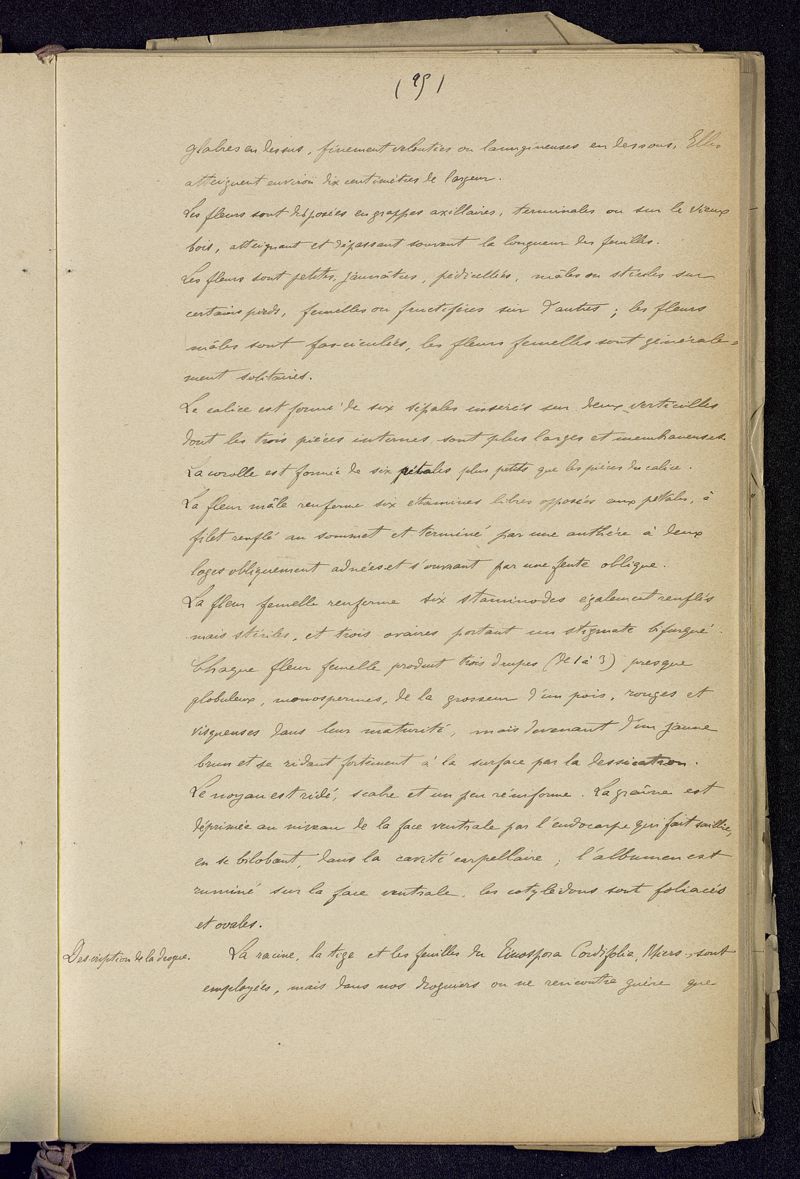 (25)
glabres en dessus, finement veloutées ou lanugineuses en dessous. Elles
atteignent environ dix centimètres de largeur.
Les fleurs sont disposées en grappes axillaires, terminales ou sur le vieux
bois, atteignant et dépassant souvent la longueur des feuilles.
Les fleurs sont petites, jaunâtres, pédicellées, mâles ou stériles sur
certains pieds, femelles ou fructifères sur d'autres ; les fleurs
mâles sont fasciculées, les fleurs femelles sont générale-
ment solitaires.
Le calice est formé de six sépales insérés sur deux verticilles
dont les trois pièces internes sont plus larges et membraneuses.
La corolle est formée de six pétales plus petits que les pièces du calice.
La fleur mâle renferme six étamines libres opposées aux pétales, à
filet renflé au sommet et terminé par une anthère à deux
loges obliquement adnées et s'ouvrant par une fente oblique.
La fleur femelle renferme six staminodes également renflés
mais stériles, et trois ovaires portant un stigmate bifurqué.
Chaque fleur femelle produit trois drupes (de 1 à 3) presque
globuleux, monospermes, de la grosseur d'un pois, rouges et
visqueuses dans leur maturité, mais devenant d'un jaune
brun et se ridant fortement à la surface par la dessication.
Le noyau est ridé, scabre et un peu réniforme. La graine est
déprimée au niveau de la face ventrale par l'endocarpe qui fait saillie,
en se bilobant, dans la cavité carpellaire ; l'albumen est
ruminé sur la face ventrale. les cotylédons sont foliacés
et ovales.
Description de la drogue. La racine, la tige et les feuilles du Tinospora Cordifolia, Miers, sont
employées, mais dans nos droguiers on ne rencontre guère que